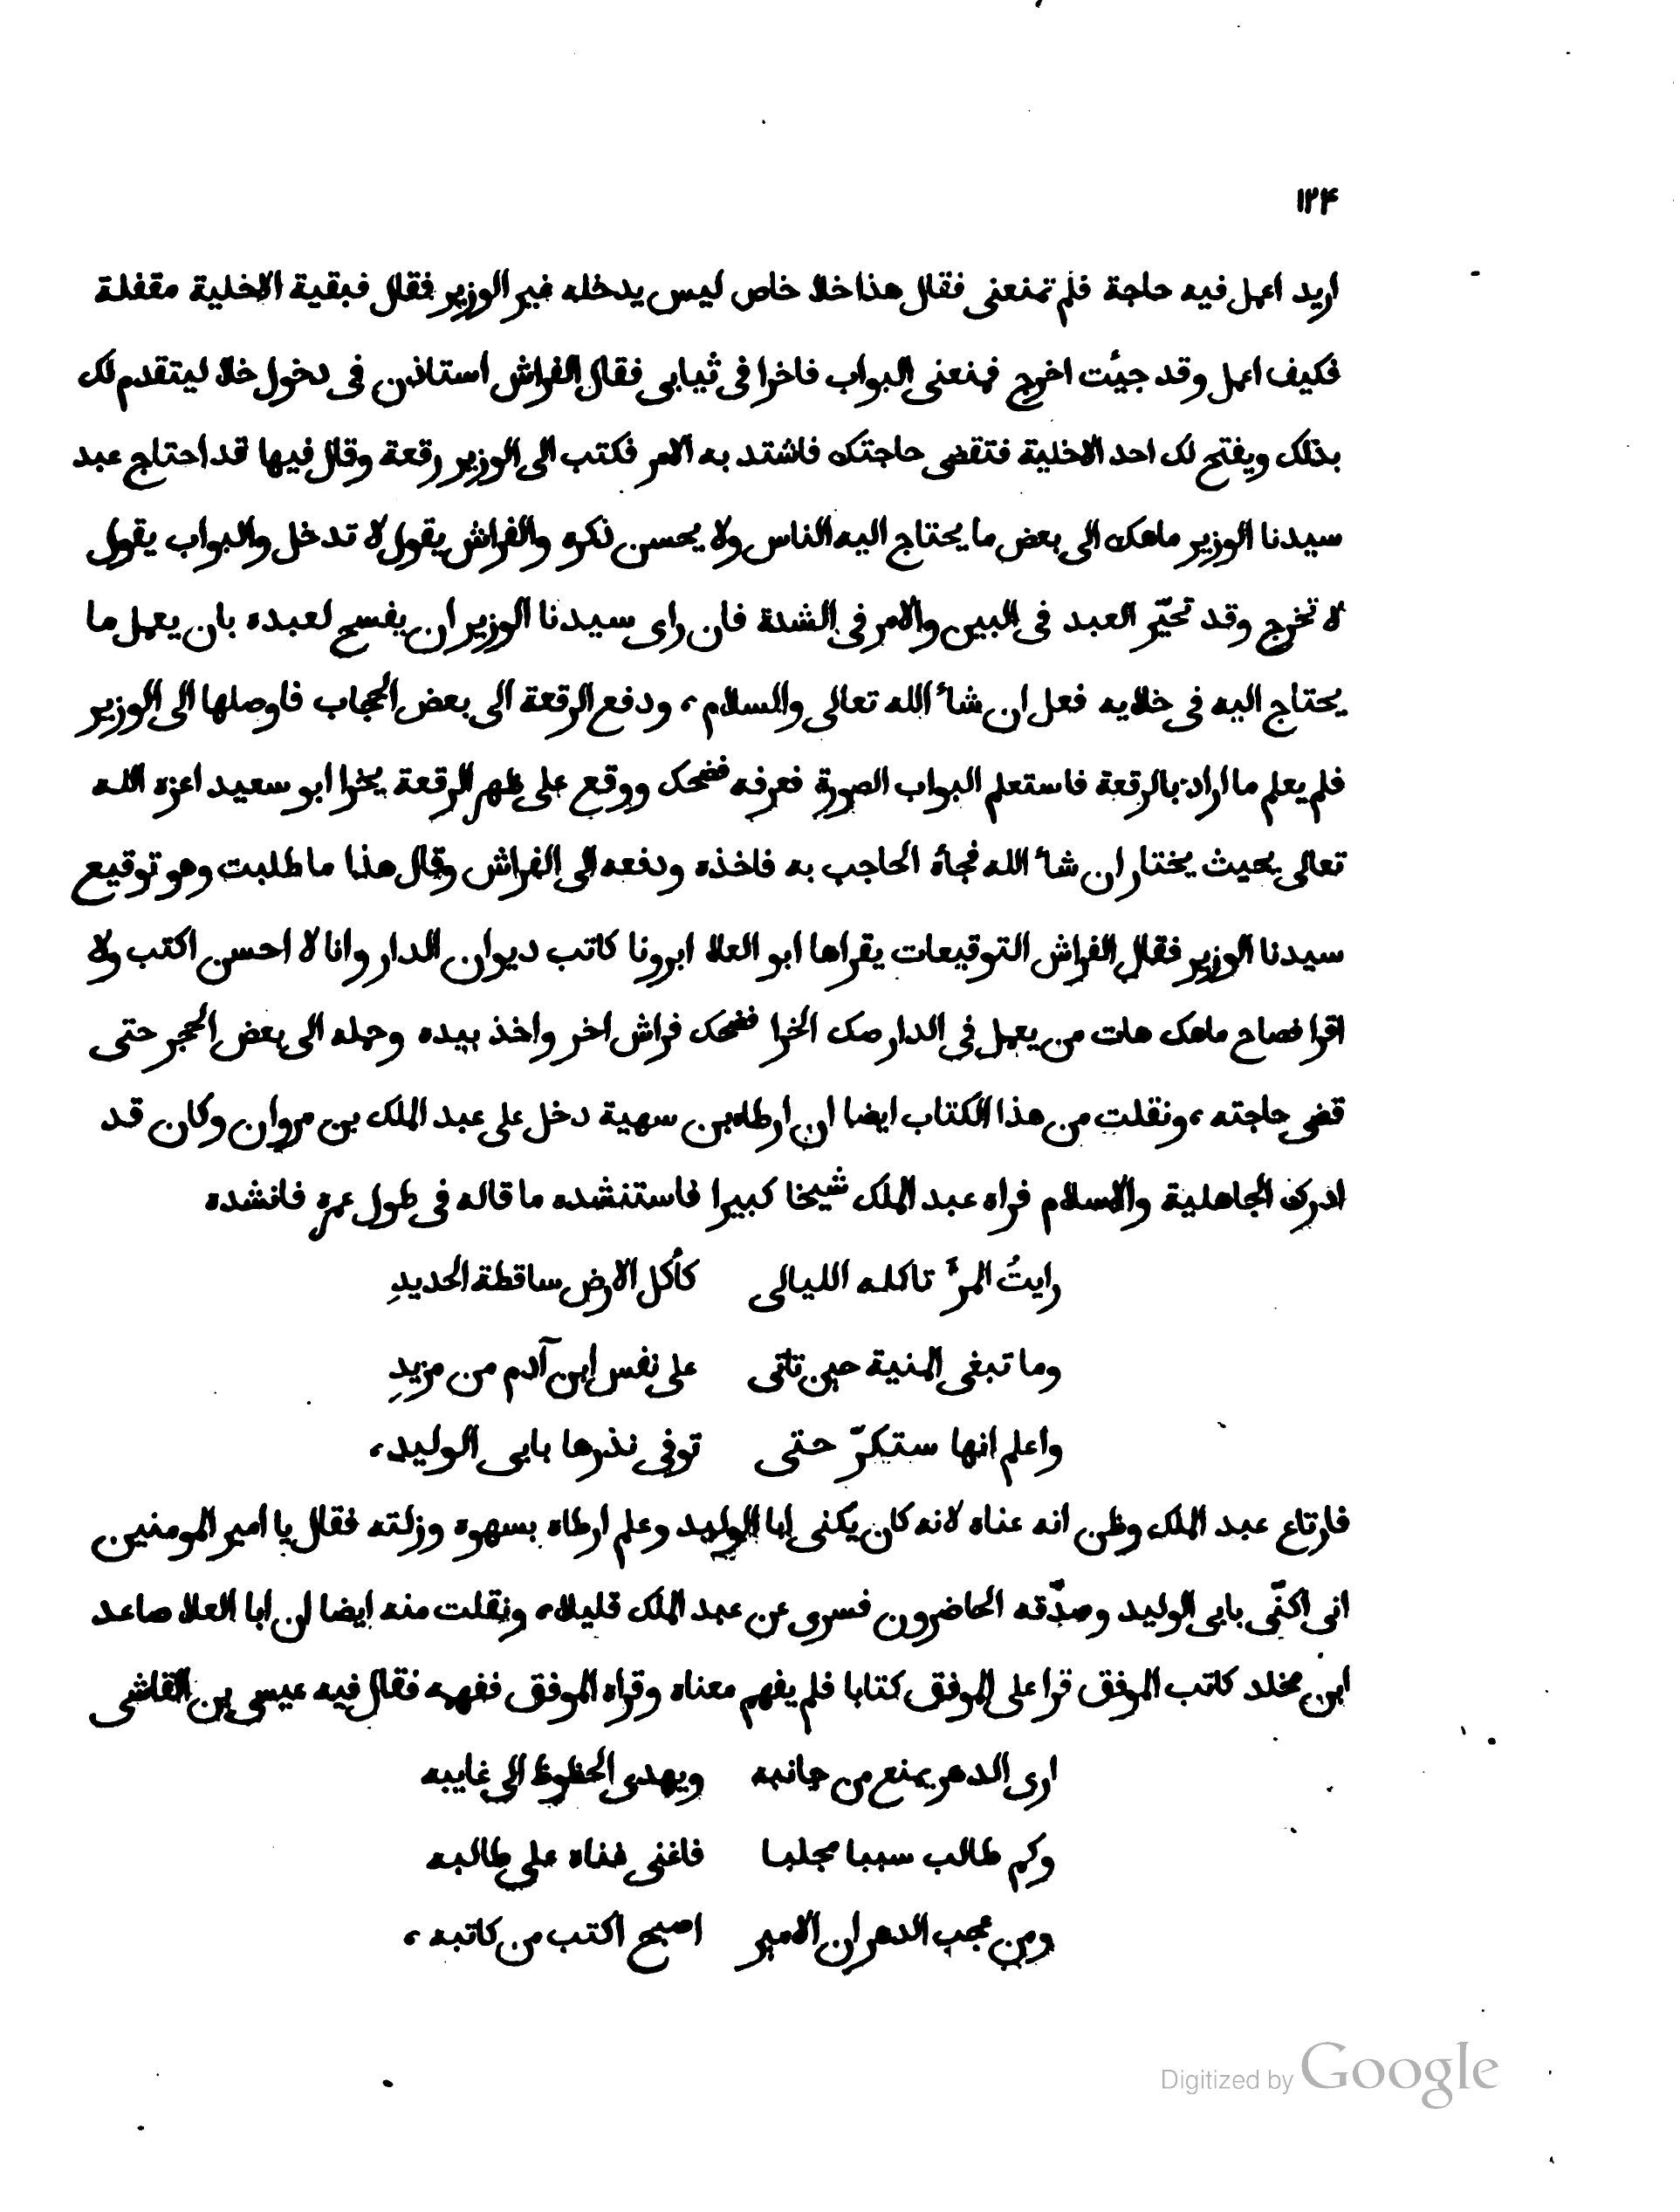 ١٢۴
اريد اعمل فيه حاجة فلم تمنعنى فقال هذا خلا خاص ليس يدخله غير الوزير فقال فبقية الاخلية مقفلة
فكيف اعمل وقد جيُت اخرج فمنعنى البواب فاخرا فى ثيابى فقال الفراش استاذن فى دخول خلا ليتقدم لك
بذلك ويفتح لك احد الاخلية فتقضى حاجتك فاشتد به الامر فكتب الى الوزير رقعة وقال فيها قد احتاج عبد
سيدنا الوزير ماهك الى بعض ما يحتاج اليه الناس ولا يحسن ذكره والفراش يقول لا تدخل والبواب يقول
لا تخرج وقد تحيّر العبد فى البين والامر فى الشدة فان راى سيدنا الوزير ان يفسح لعبده بان يعمل ما
يحتاج اليه فى خلايه فعل ان شاُ الله تعالى والسلام، ودفع الرقعة الى بعض الحجاب فاوصلها الى الوزير
فلم يعلم ما اراد بالرقعة فاستعلم البواب الصورة فعرفه فضحك ووقع على ظهر الرقعة يخرا ابو سعيد اعزه الله
تعالى بحيث يختار ان شاُ الله فجأه الحاجب به فاخذه ودفعه الى الفراش وقال هذا ما طلبت وهو توقيع
سيدنا الوزير فقال الفراش التوقيعات يقراها ابو العلا ابرونا كاتب ديوان الدار وانا لا احسن اكتب ولا
اقرا فصاح ماهك هات من يعمل فى الدار صك الخرا فضحك فراش اخر واخذ بيده وحمله الى بعض الحجر حتى
قضى حاجته، ونقلت من هذا الكتاب ايضا ان ارطاه بن سهية دخل على عبد الملك بن مروان وكان قد
ادرك الجاهلية والاسلام فراه عبد الملك شيخا كبيرا فاستنشده ما قاله فى طول عمره فانشده
رايتُ المرُ تاكله الليالى كأكل الارض ساقطة الحديدِ
وما تبغى المنية حين تاتى على نفس ابن آدم من مزيدِ
واعلم انها ستكرّ حتى توفى نذرها بابى الوليد،
فارتاع عبد الملك وظن انه عناه لانه كان يكنى ابا الوليد وعلم ارطاه بسهوه وزلته فقال يا امير المومنين
انى اكنّى بابى الوليد وصدّقه الحاضرون فسرى عن عبد الملك قليلا، ونقلت منه ايضا ان ابا العلا صاعد
ابن مخلد كاتب الموفق قرا على الموفق كتابا فلم يفهم معناه وقراه الموفق ففهمه فقال فيه عيسى بن القاشى
ارى الدهر يمنع من جانبه ويهدى الحظوظ الى غايبه
وكم طالب سببا مجلبا فاغنى غناه على طالبه
ومن عجب الدهر ان الامير اصبح اكتب من كاتبه،
Digitized by Google